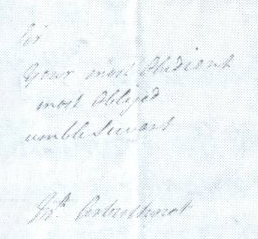 Sir
Your most Obediant
most Obliged
umble Servant
Jn.º Arbuthnot